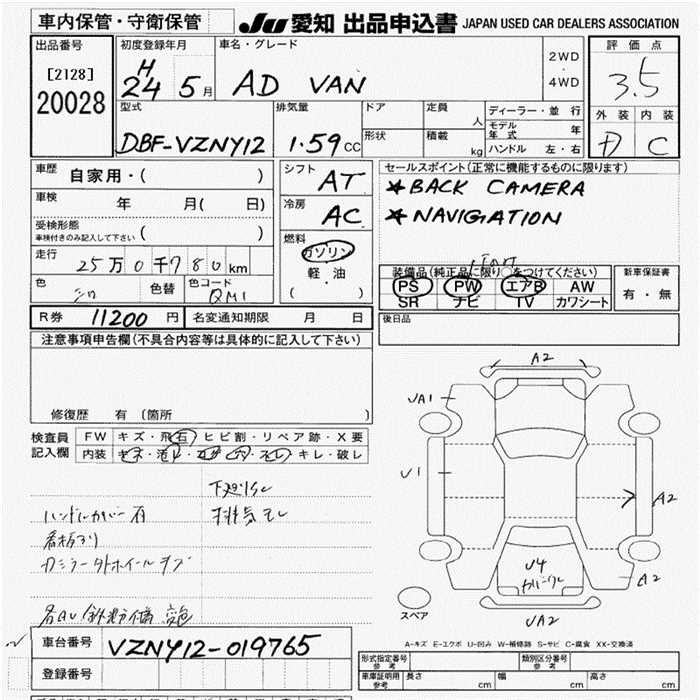 車内保管・守衛保管
JU 愛知 出品申込書 JAPAN USED CAR DEALERS ASSOCIATION
出品番号
[2128]
20028
初度登録年月
H
24 5月
車名・グレード
AD VAN
2WD
・
4WD
評価点
3.5
外装 内装
C
型式
DBF-VZNY12
排気量
1.59 CC
ドア
形状
定員
人
積載
kg
ディーラー・並行
モデル年式 年
ハンドル 左・右
車歴
自家用・( )
車検
年 月( 日)
受検形態
車検付きのみ記入して下さい ( )
走行
25万0千780km
色
シロ
色替
色コード
QM1
シフト
AT
冷房
AC
燃料
ガソリン
・
軽・油
( )
セールスポイント(正常に機能するものに限ります)
★BACK CAMERA
★NAVIGATION
装備品(純正品に限り○をつけてください)
PS PW エアB AW
SR ナビ TV カワシート
新車保証書
有・無
R券 11200円
名変通知期限 月 日
後日品
注意事項申告欄(不具合内容等は具体的に記入して下さい)
修復歴 有(箇所 )
検査員
記入欄
FW キズ・飛石 ヒビ割・リペア跡・X要
内装 キズ・汚レ・コゲ・穴・スレ・キレ・破レ
下廻りサビ
ハンドルカバー有
排気モレ
看板アリ
A2
UA1
U1
A2
U4
A2
UA2
スペア
A-キズ E-エクボ U-凹み W-補修跡 S-サビ C-腐食 XX-交換済
車台番号
VZNY12-019765
登録番号
形式指定番号
参考
類別区分番号
参考
車庫証明用
参考
長さ cm
幅 cm
高さ cm